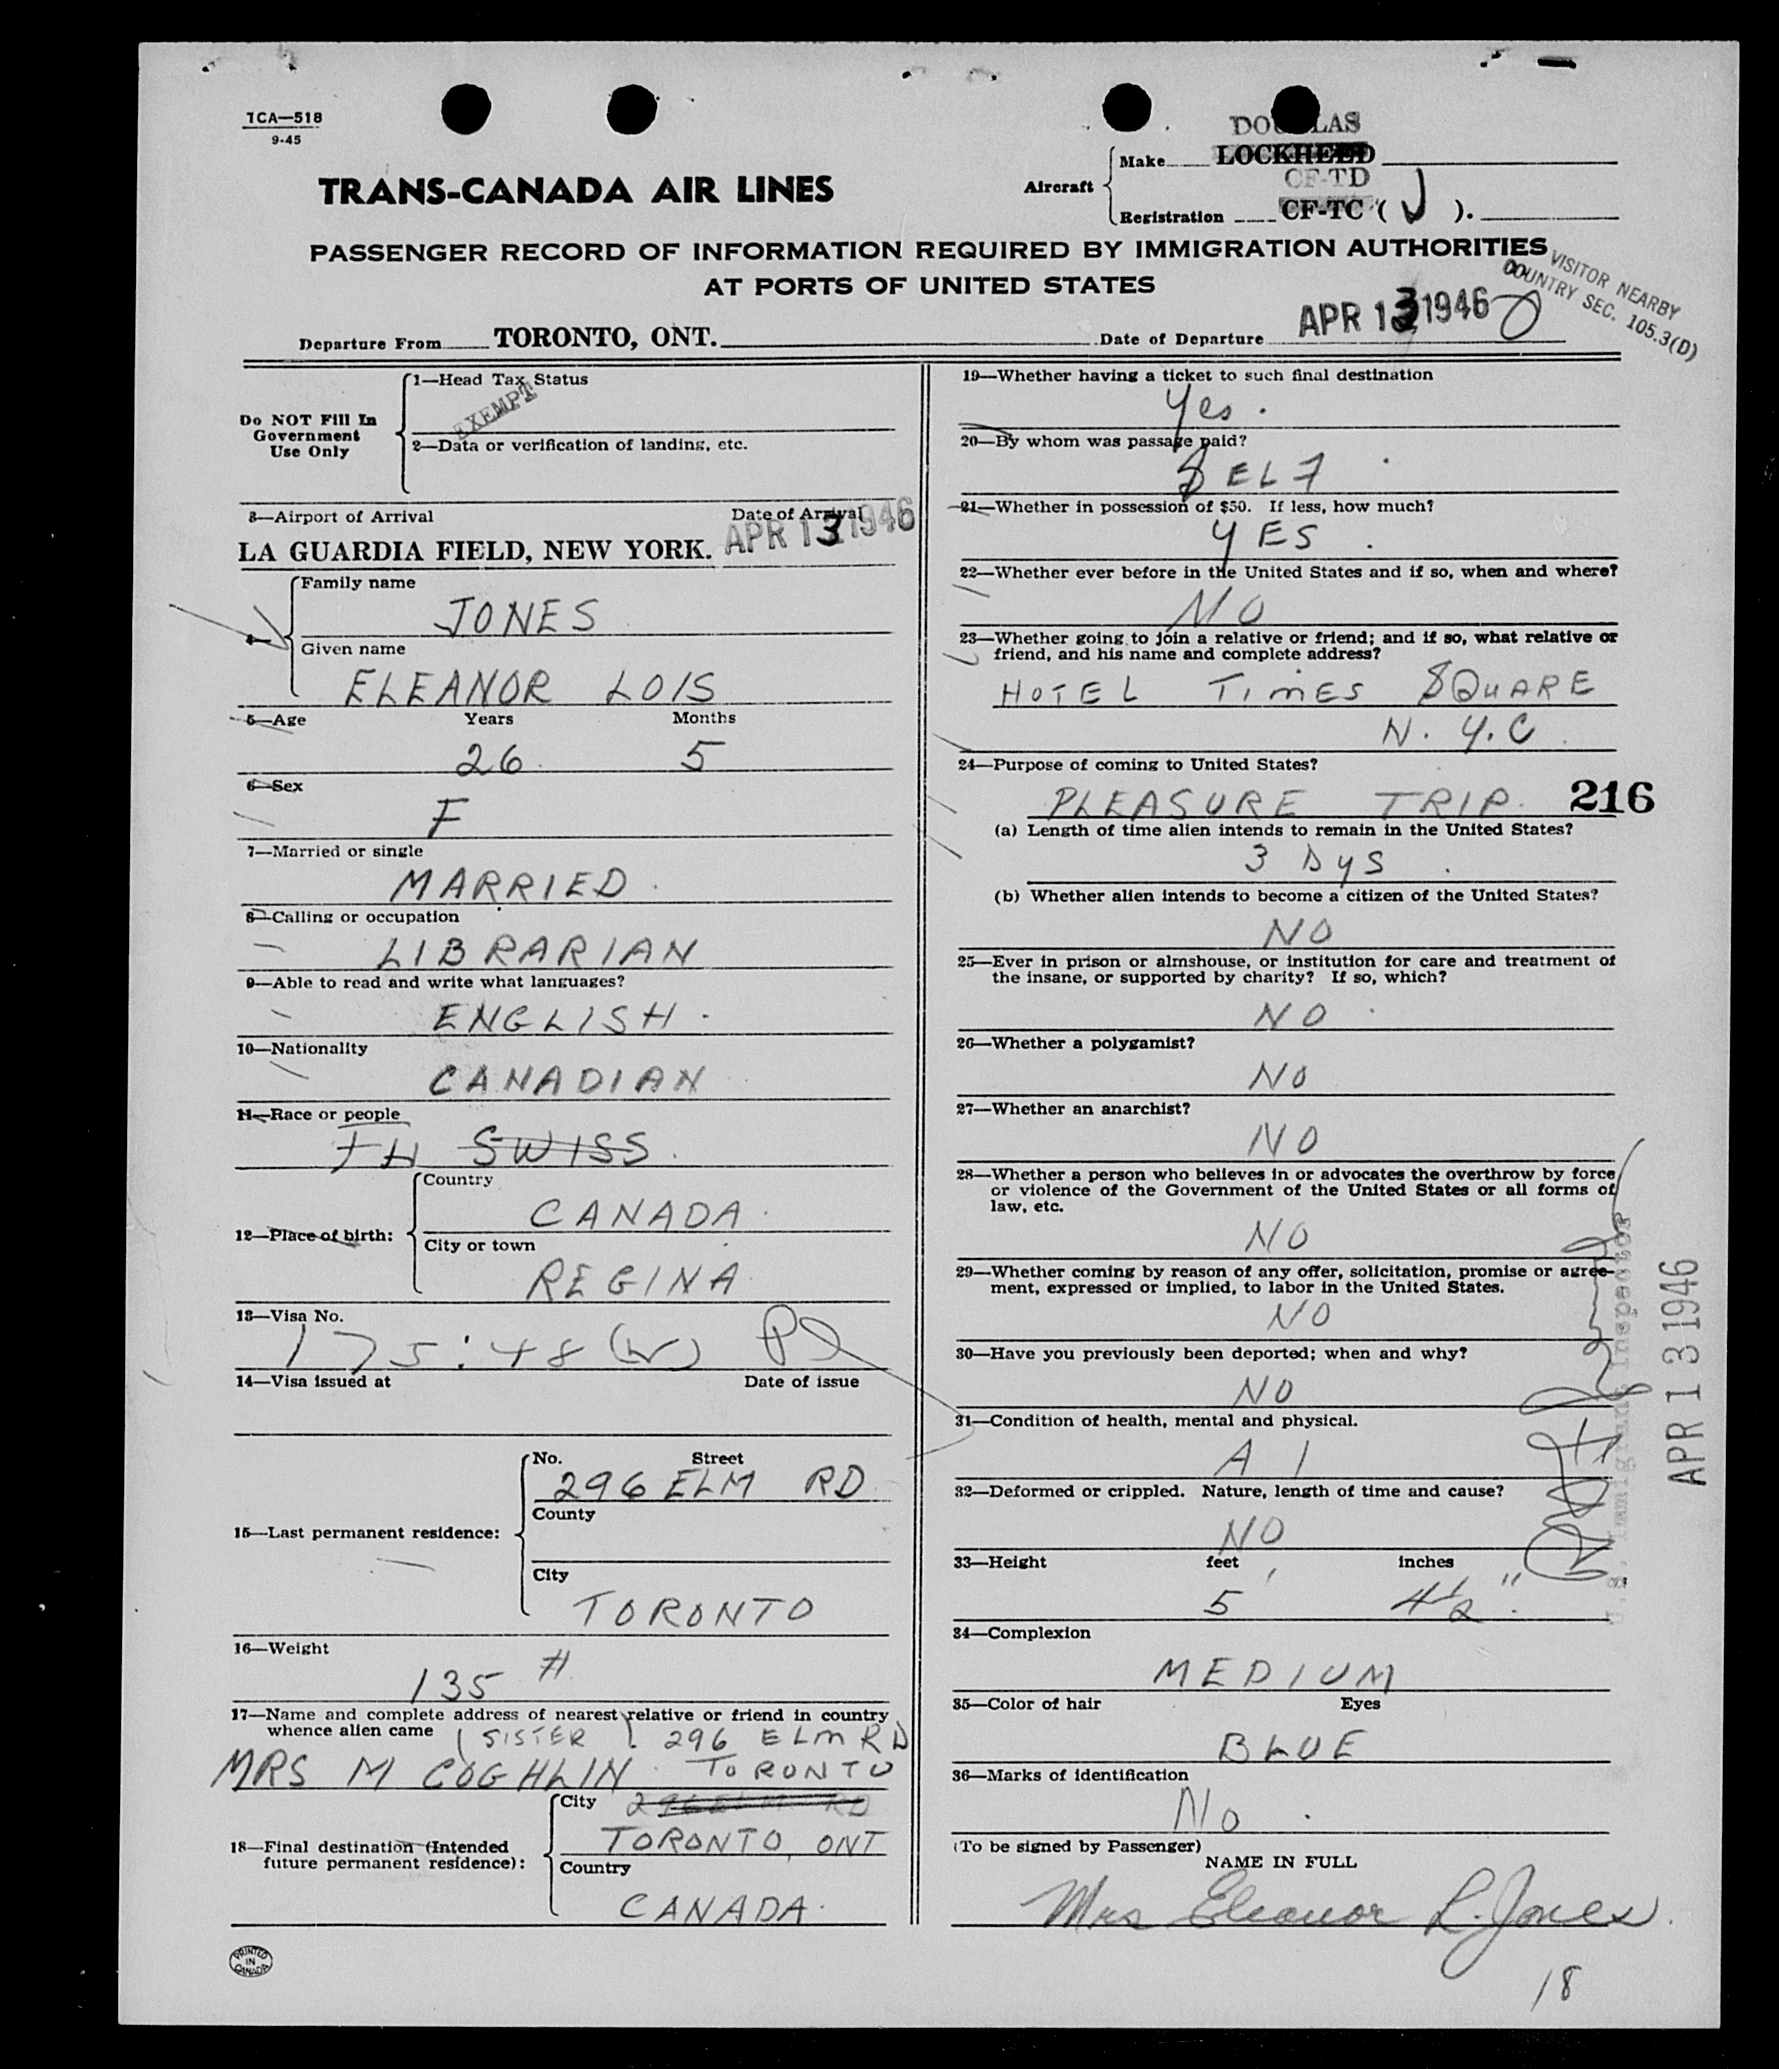 TCA—518
9-45
TRANS-CANADA AIR LINES
Aircraft
DOUGLAS
Make LOCKHEED
CF-TD
Registration CF-TC ( J ).
PASSENGER RECORD OF INFORMATION REQUIRED BY IMMIGRATION AUTHORITIES
AT PORTS OF UNITED STATES
VISITOR NEARBY
COUNTRY SEC. 105.3(D)
Departure From TORONTO, ONT.
Date of Departure APR 13 1946
Do NOT Fill In
Government
Use Only
1—Head Tax Status
EXEMPT
2—Data or verification of landing, etc.
3—Airport of Arrival Date of Arrival
LA GUARDIA FIELD, NEW YORK. APR 13 1946
4—
Family name
JONES
Given name
ELEANOR LOIS
5—Age Years Months
26 5
6—Sex
F
7—Married or single
MARRIED
8—Calling or occupation
LIBRARIAN
9—Able to read and write what languages?
ENGLISH
10—Nationality
CANADIAN
11—Race or people
SWISS
12—Place of birth:
Country
CANADA
City or town
REGINA
13—Visa No.
175:48 (W)
14—Visa issued at Date of issue
15—Last permanent residence:
No. Street
296 ELM RD
County
City
TORONTO
16—Weight
135 #
17—Name and complete address of nearest relative or friend in country
whence alien came (SISTER) 296 ELM RD
MRS M COGHLIN TORONTO
18—Final destination (Intended
future permanent residence):
City 296 ELM RD
TORONTO, ONT
Country
CANADA
PRINTED
IN
CANADA
19—Whether having a ticket to such final destination
Yes.
20—By whom was passage paid?
SELF
21—Whether in possession of $50. If less, how much?
YES
22—Whether ever before in the United States and if so, when and where?
NO
23—Whether going to join a relative or friend; and if so, what relative or
friend, and his name and complete address?
HOTEL TIMES SQUARE
N.Y.C.
24—Purpose of coming to United States?
PLEASURE TRIP 216
(a) Length of time alien intends to remain in the United States?
3 DYS
(b) Whether alien intends to become a citizen of the United States?
NO
25—Ever in prison or almshouse, or institution for care and treatment of
the insane, or supported by charity? If so, which?
NO
26—Whether a polygamist?
NO
27—Whether an anarchist?
NO
28—Whether a person who believes in or advocates the overthrow by force
or violence of the Government of the United States or all forms of
law, etc.
NO
29—Whether coming by reason of any offer, solicitation, promise or agree-
ment, expressed or implied, to labor in the United States.
NO
30—Have you previously been deported; when and why?
NO
31—Condition of health, mental and physical.
A 1
32—Deformed or crippled. Nature, length of time and cause?
NO
33—Height feet inches
5' 4½"
34—Complexion
MEDIUM
35—Color of hair Eyes
BLUE
36—Marks of identification
No
(To be signed by Passenger)
NAME IN FULL
Mrs Eleanor L. Jones
18
U.S. Immigrant Inspector
APR 13 1946